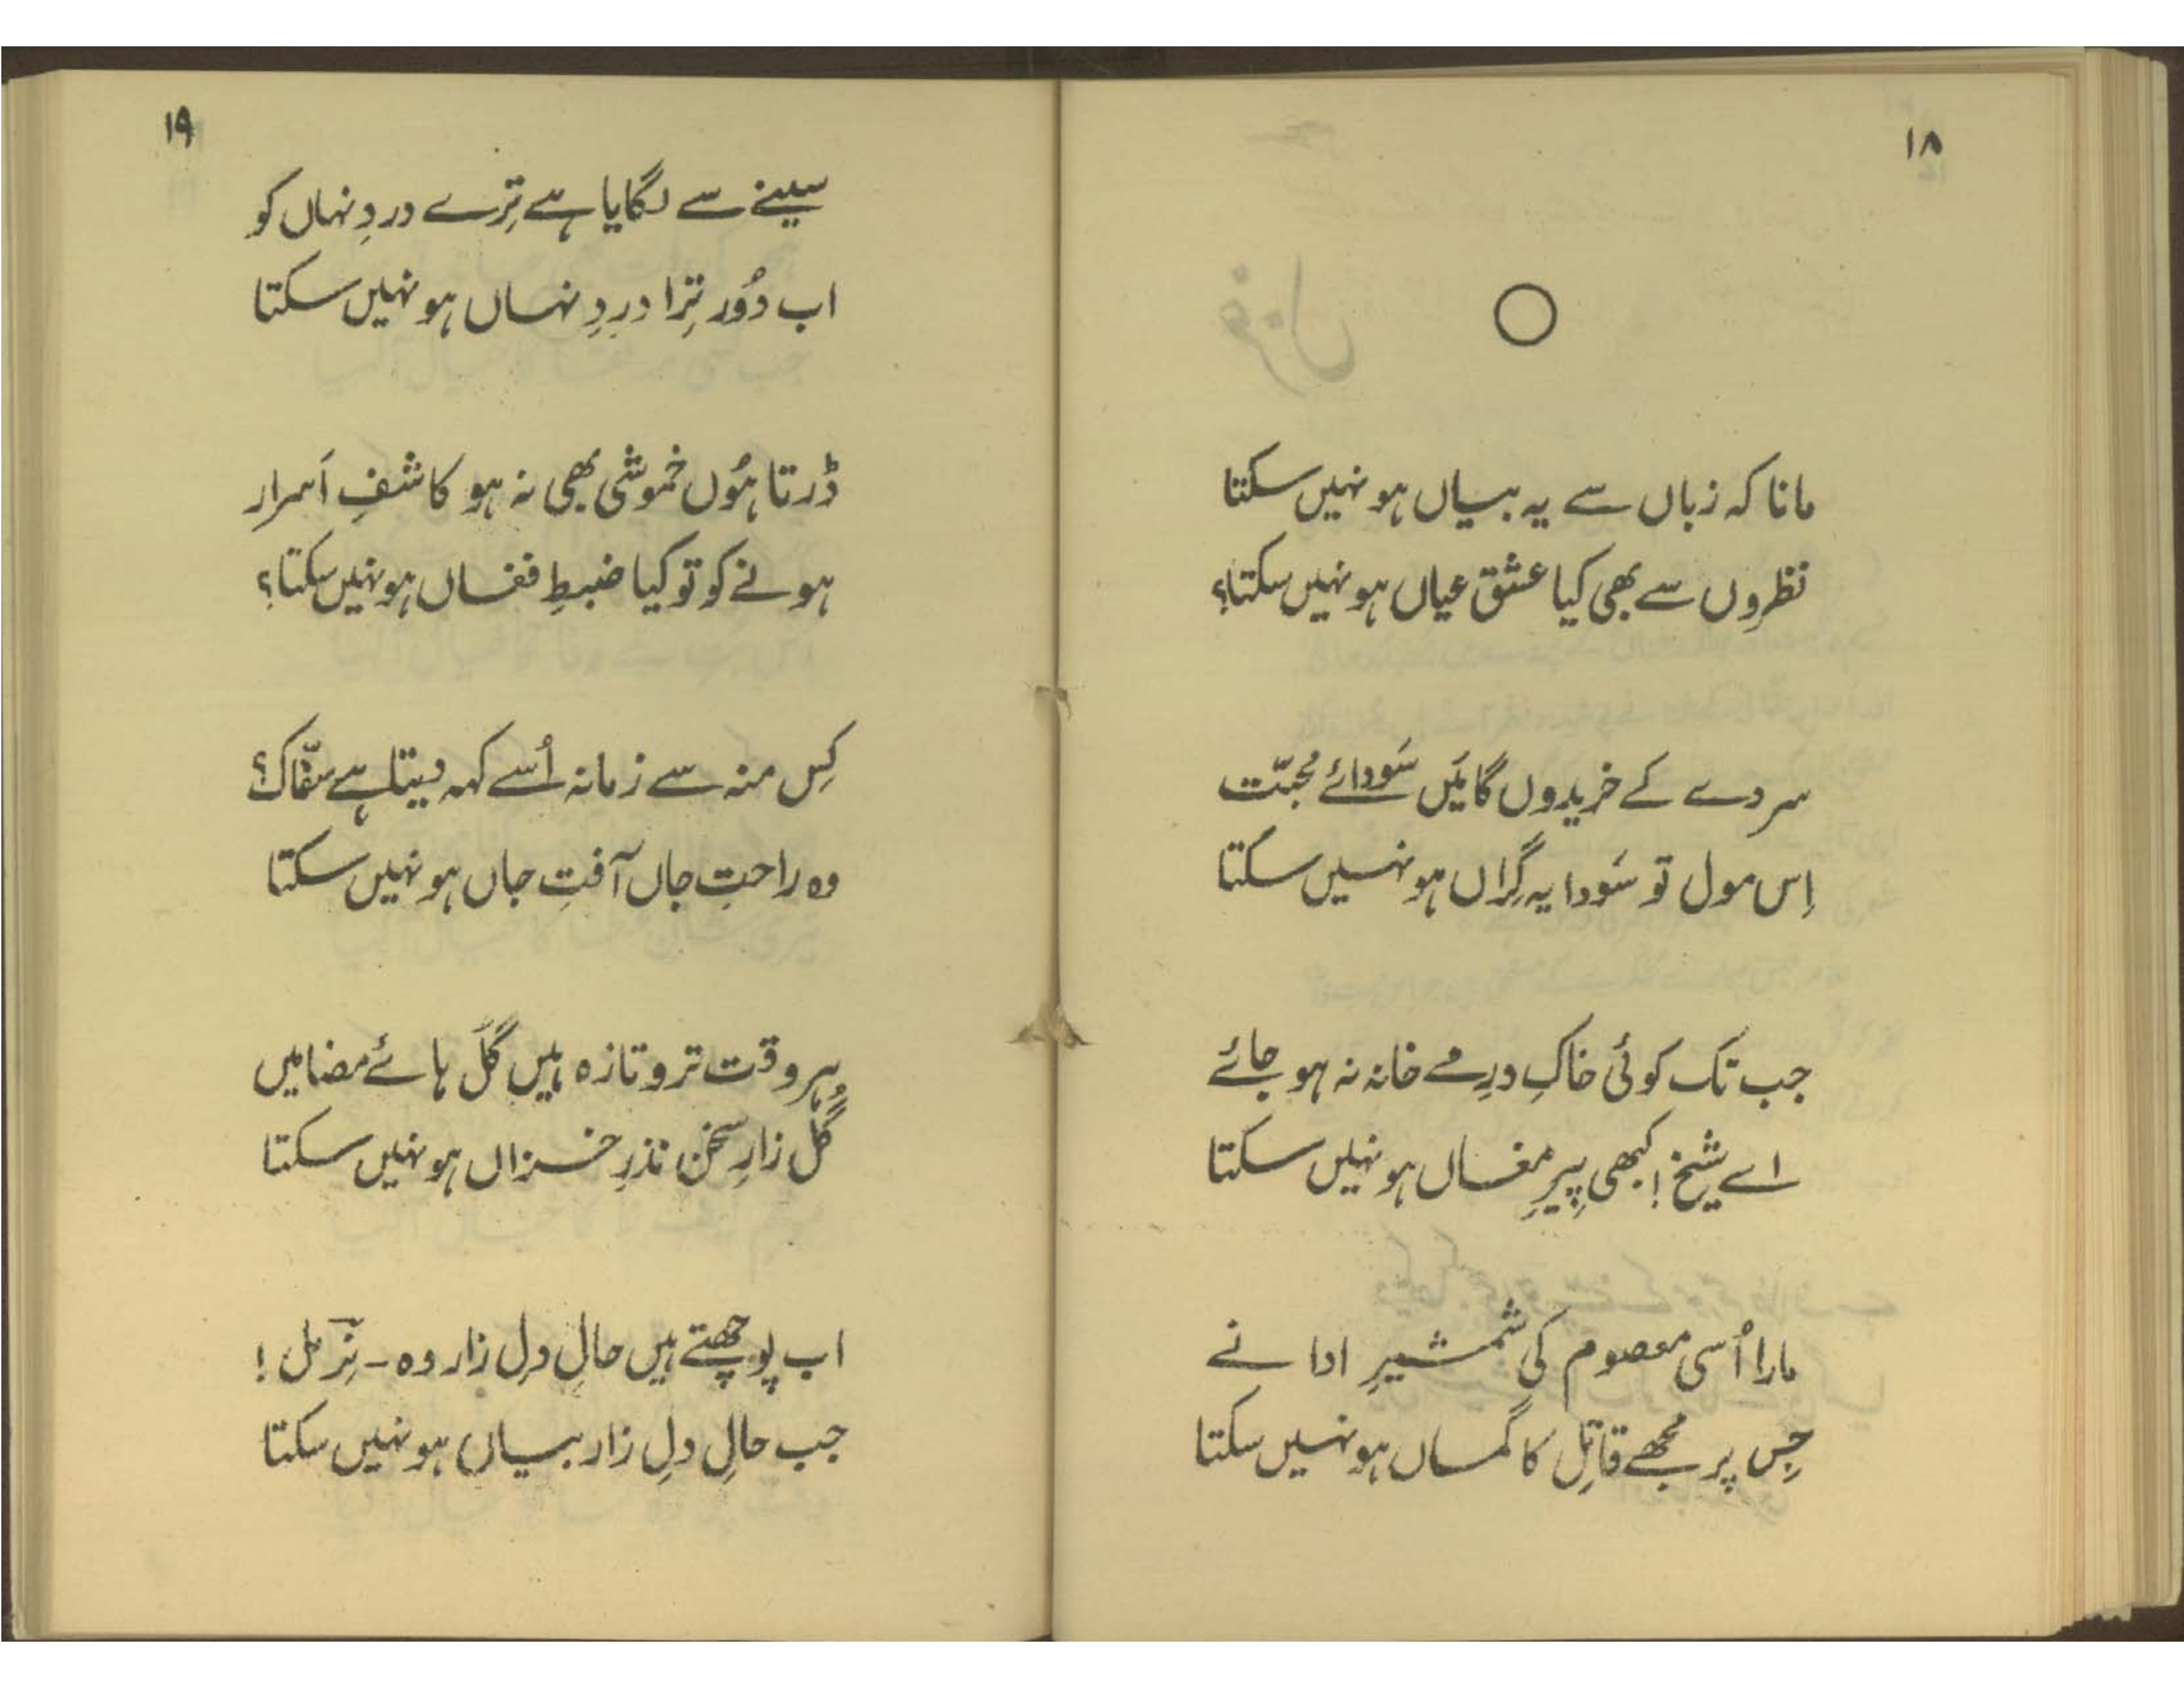 ۱۸
مانا کہ زباں سے یہ بیاں ہو نہیں سکتا
نظروں سے بھی کیا عشق عیاں ہو نہیں سکتا؟
سر دے کے خریدوں گا مَیں سَودائے محبّت
اِس مول تو سَودا یہ گِراں ہو نہیں سکتا
جب تک کوئی خاکِ درِ مے خانہ نہ ہو جائے
اے شیخ! کبھی پِیرِ مغاں ہو نہیں سکتا
مارا اُسی معصوم کی شمشیرِ ادا نے
جِس پر مجھے قاتِل کا گماں ہو نہیں سکتا
۱۹
سینے سے لگایا ہے تِرے دردِ نہاں کو
اب دُور تِرا دردِ نہاں ہو نہیں سکتا
ڈرتا ہُوں خموشی بھی نہ ہو کاشفِ اَسرار
ہونے کو تو کیا ضبطِ فغاں ہو نہیں سکتا؟
کِس منہ سے زمانہ اُسے کہہ دیتا ہے سفّاک؟
وہ راحتِ جاں آفتِ جاں ہو نہیں سکتا
ہر وقت تر و تازہ ہیں گُل ہائے مضامیں
گُل زارِ سخن نذرِ خزاں ہو نہیں سکتا
اب پوچھتے ہیں حالِ دلِ زار وہ - نِرمل!
جب حالِ دلِ زار بیاں ہو نہیں سکتا